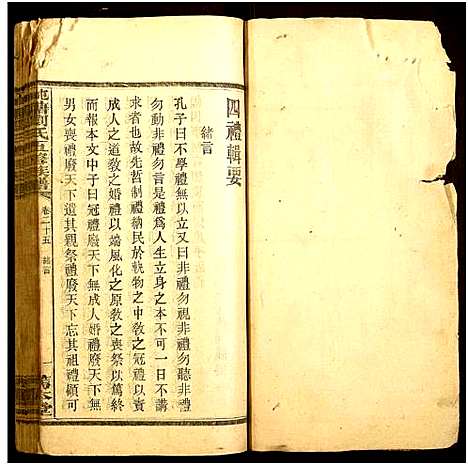 四禮輯要
緒言
孔子曰不學禮無以立又曰非禮勿視非禮勿聽非禮
勿動非禮勿言是禮爲人生立身之本不可一日不講
求者也故先哲制禮納民於軌物之中敎之冠禮以責
成人之道敎之婚禮以端風化之原敎之喪祭以篤終
而報本文中子曰冠禮廢天下無成人婚禮廢天下無
男女喪禮廢天下遺其親祭禮廢天下忘其祖禮顧可
劉氏五修族譜
卷二十五
緒言
一
堂